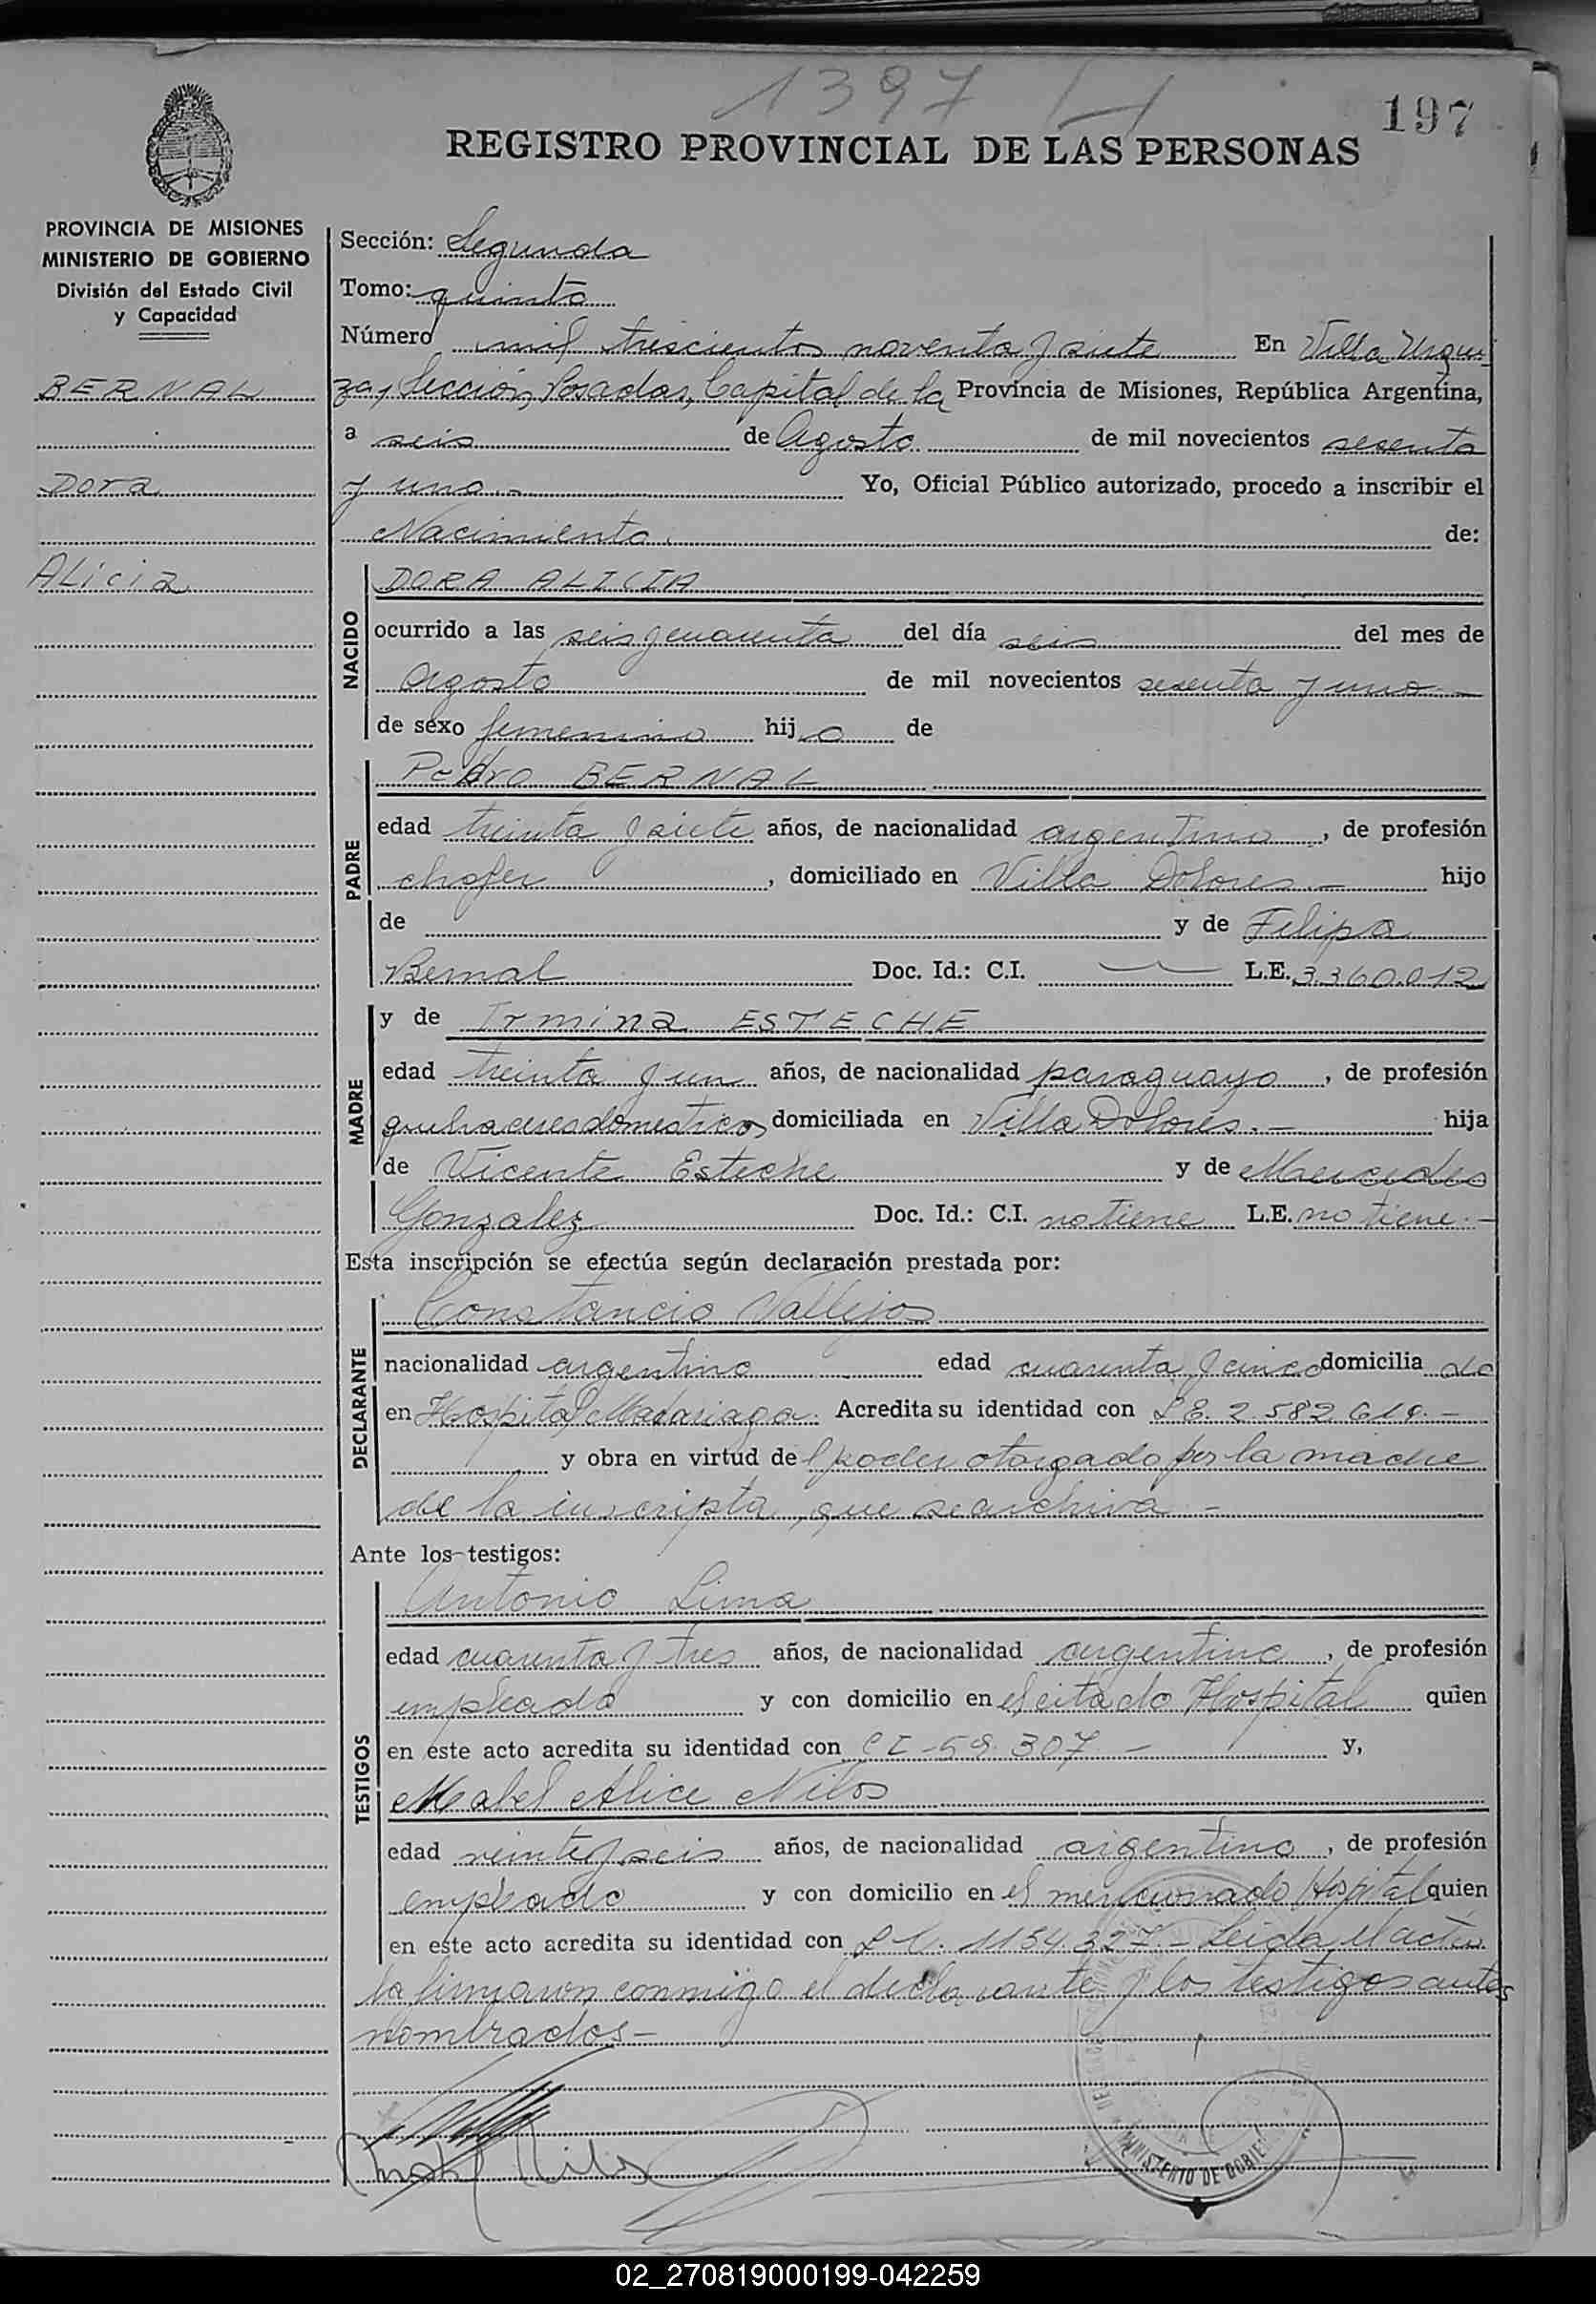 1397
197
REGISTRO PROVINCIAL DE LAS PERSONAS
PROVINCIA DE MISIONES
MINISTERIO DE GOBIERNO
División del Estado Civil
y Capacidad
BERNAL
Dora
Alicia
Sección: Segunda
Tomo: quinto
Número mil trescientos noventa y siete En Villa Urqui
za, Sección, Posadas, Capital de la Provincia de Misiones, República Argentina,
a seis de Agosto de mil novecientos sesenta
y uno.- Yo, Oficial Público autorizado, procedo a inscribir el
Nacimiento. de:
NACIDO
DORA ALICIA
ocurrido a las seis y cuarenta del día seis del mes de
Agosto de mil novecientos sesenta y uno -
de sexo femenino hij a de
PADRE
Pedro BERNAL
edad treinta y siete años, de nacionalidad argentino, de profesión
chofer, domiciliado en Villa Dolores.- hijo
de y de Filipa
Bernal Doc. Id.: C.I. L.E. 3.360.012
MADRE
y de Irmina ESTECHE
edad treinta y un años, de nacionalidad paraguaya, de profesión
quehaceres domesticos domiciliada en Villa Dolores.- hija
de Vicente Esteche y de Mercedes
Gonzalez Doc. Id.: C.I. no tiene L.E. no tiene.-
Esta inscripción se efectúa según declaración prestada por:
DECLARANTE
Constancio Vallejos
nacionalidad argentino edad cuarenta y cinco domicilia do
en Hospital Madariaga. Acredita su identidad con L.E. 2.582.619.-
y obra en virtud de l poder otorgado por la madre
de la inscripta, que se archiva -
Ante los testigos:
TESTIGOS
Antonio Lima
edad cuarenta y tres años, de nacionalidad argentino, de profesión
empleado y con domicilio en el citado Hospital quien
en este acto acredita su identidad con C I - 59.307 - y,
Mabel Alice Nilos
edad veinte y seis años, de nacionalidad argentina, de profesión
empleada y con domicilio en el mencionado Hospital quien
en este acto acredita su identidad con L C. 1154.327 - Leida el acta
la firmaron conmigo el declarante y los testigos antes
nombrados -
MINISTERIO DE GOBIERNO
02_270819000199-042259